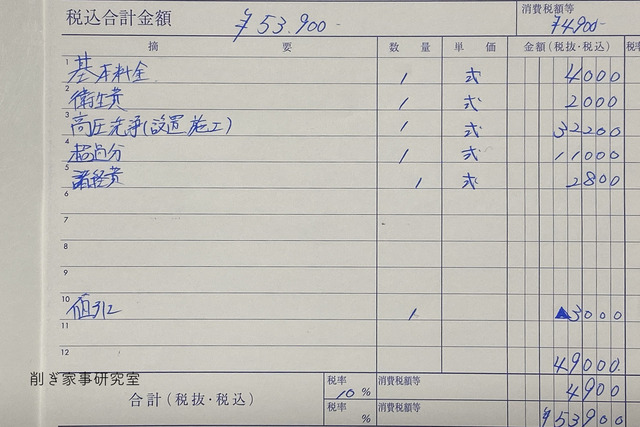 税込合計金額 ¥53,900- 消費税額等 ¥4,900-
摘 要 数 量 単 価 金額(税抜・税込) 税率
1 基本料金 1 式 4000
2 衛生費 1 式 2000
3 高圧洗浄(設置施工) 1 式 32200
4 1 式 11000
5 諸経費 1 式 2800
6
7
8
9
10 値引 1 ▲3000
11
12 49000
削ぎ家事研究室
合計(税抜・税込) 税率 10% 消費税額等 4900
税率 % 消費税額等 ¥53900